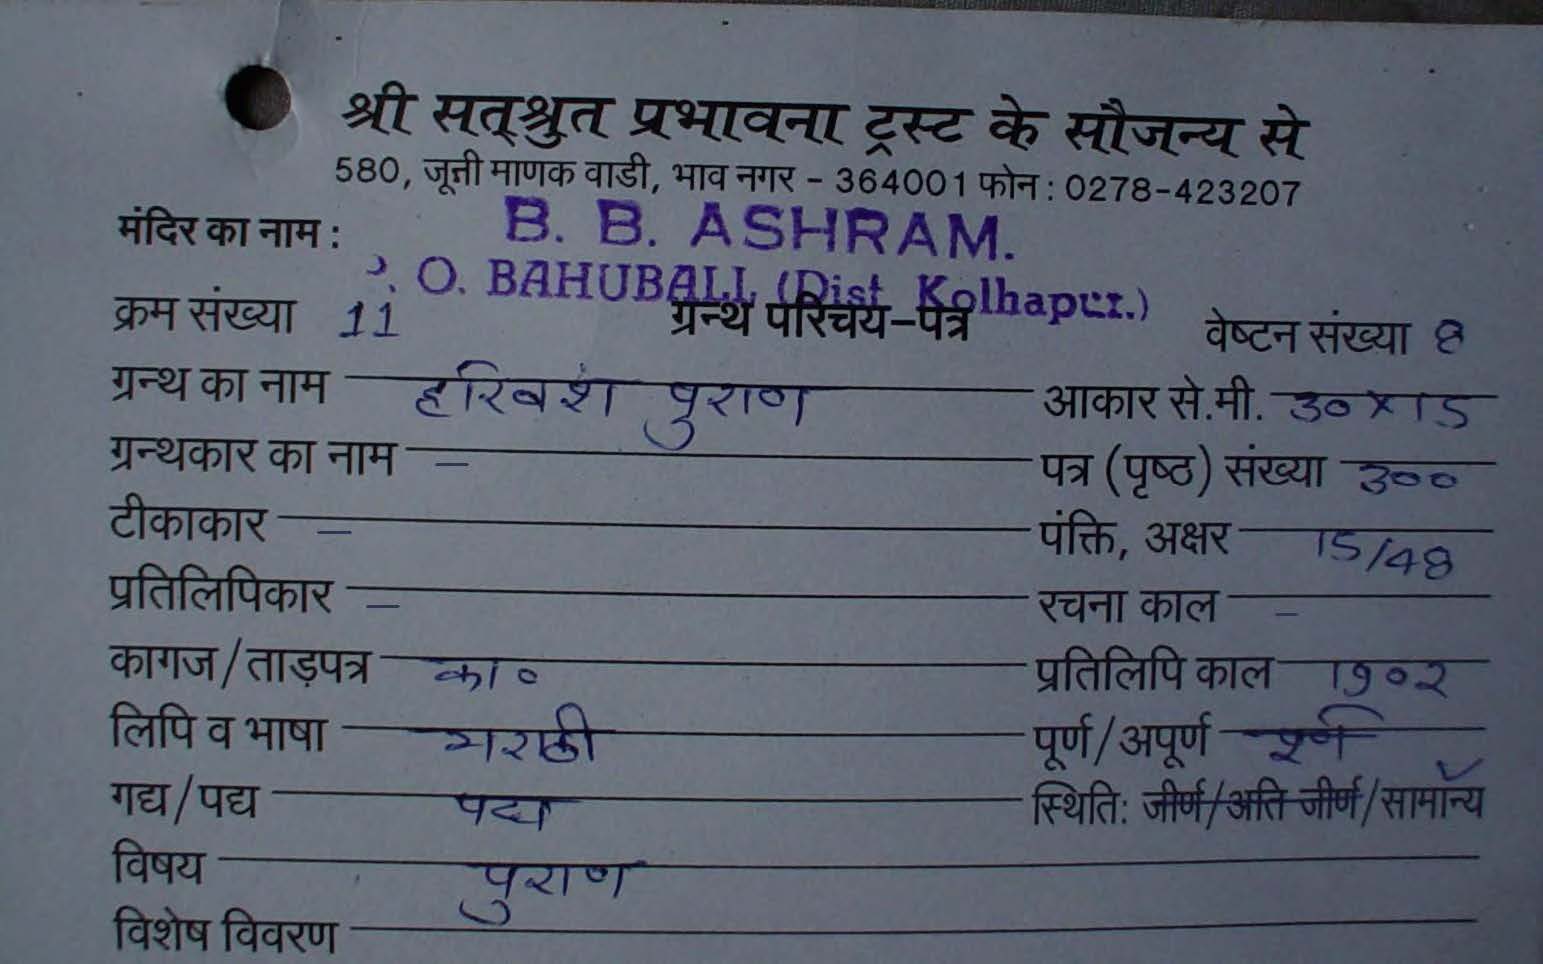 श्री सत्श्रुत प्रभावना ट्रस्ट के सौजन्य से
580, जूनी माणक वाडी, भाव नगर - 364001 फोन : 0278-423207
मंदिर का नाम : B. B. ASHRAM.
O. BAHUBALI, (Dist Kolhapur.)
क्रम संख्या 11 ग्रन्थ परिचय-पत्र वेष्टन संख्या 8
ग्रन्थ का नाम हरिवशं पुराण आकार से.मी. 30 x 15
ग्रन्थकार का नाम - पत्र (पृष्ठ) संख्या 300
टीकाकार - पंक्ति, अक्षर 15/48
प्रतिलिपिकार - रचना काल -
कागज/ताड़पत्र का० प्रतिलिपि काल १७०२
लिपि व भाषा मराठी पूर्ण/अपूर्ण पूर्ण
गद्य/पद्य पद्य स्थिति: जीर्ण/अति जीर्ण/सामान्य
विषय पुराण
विशेष विवरण